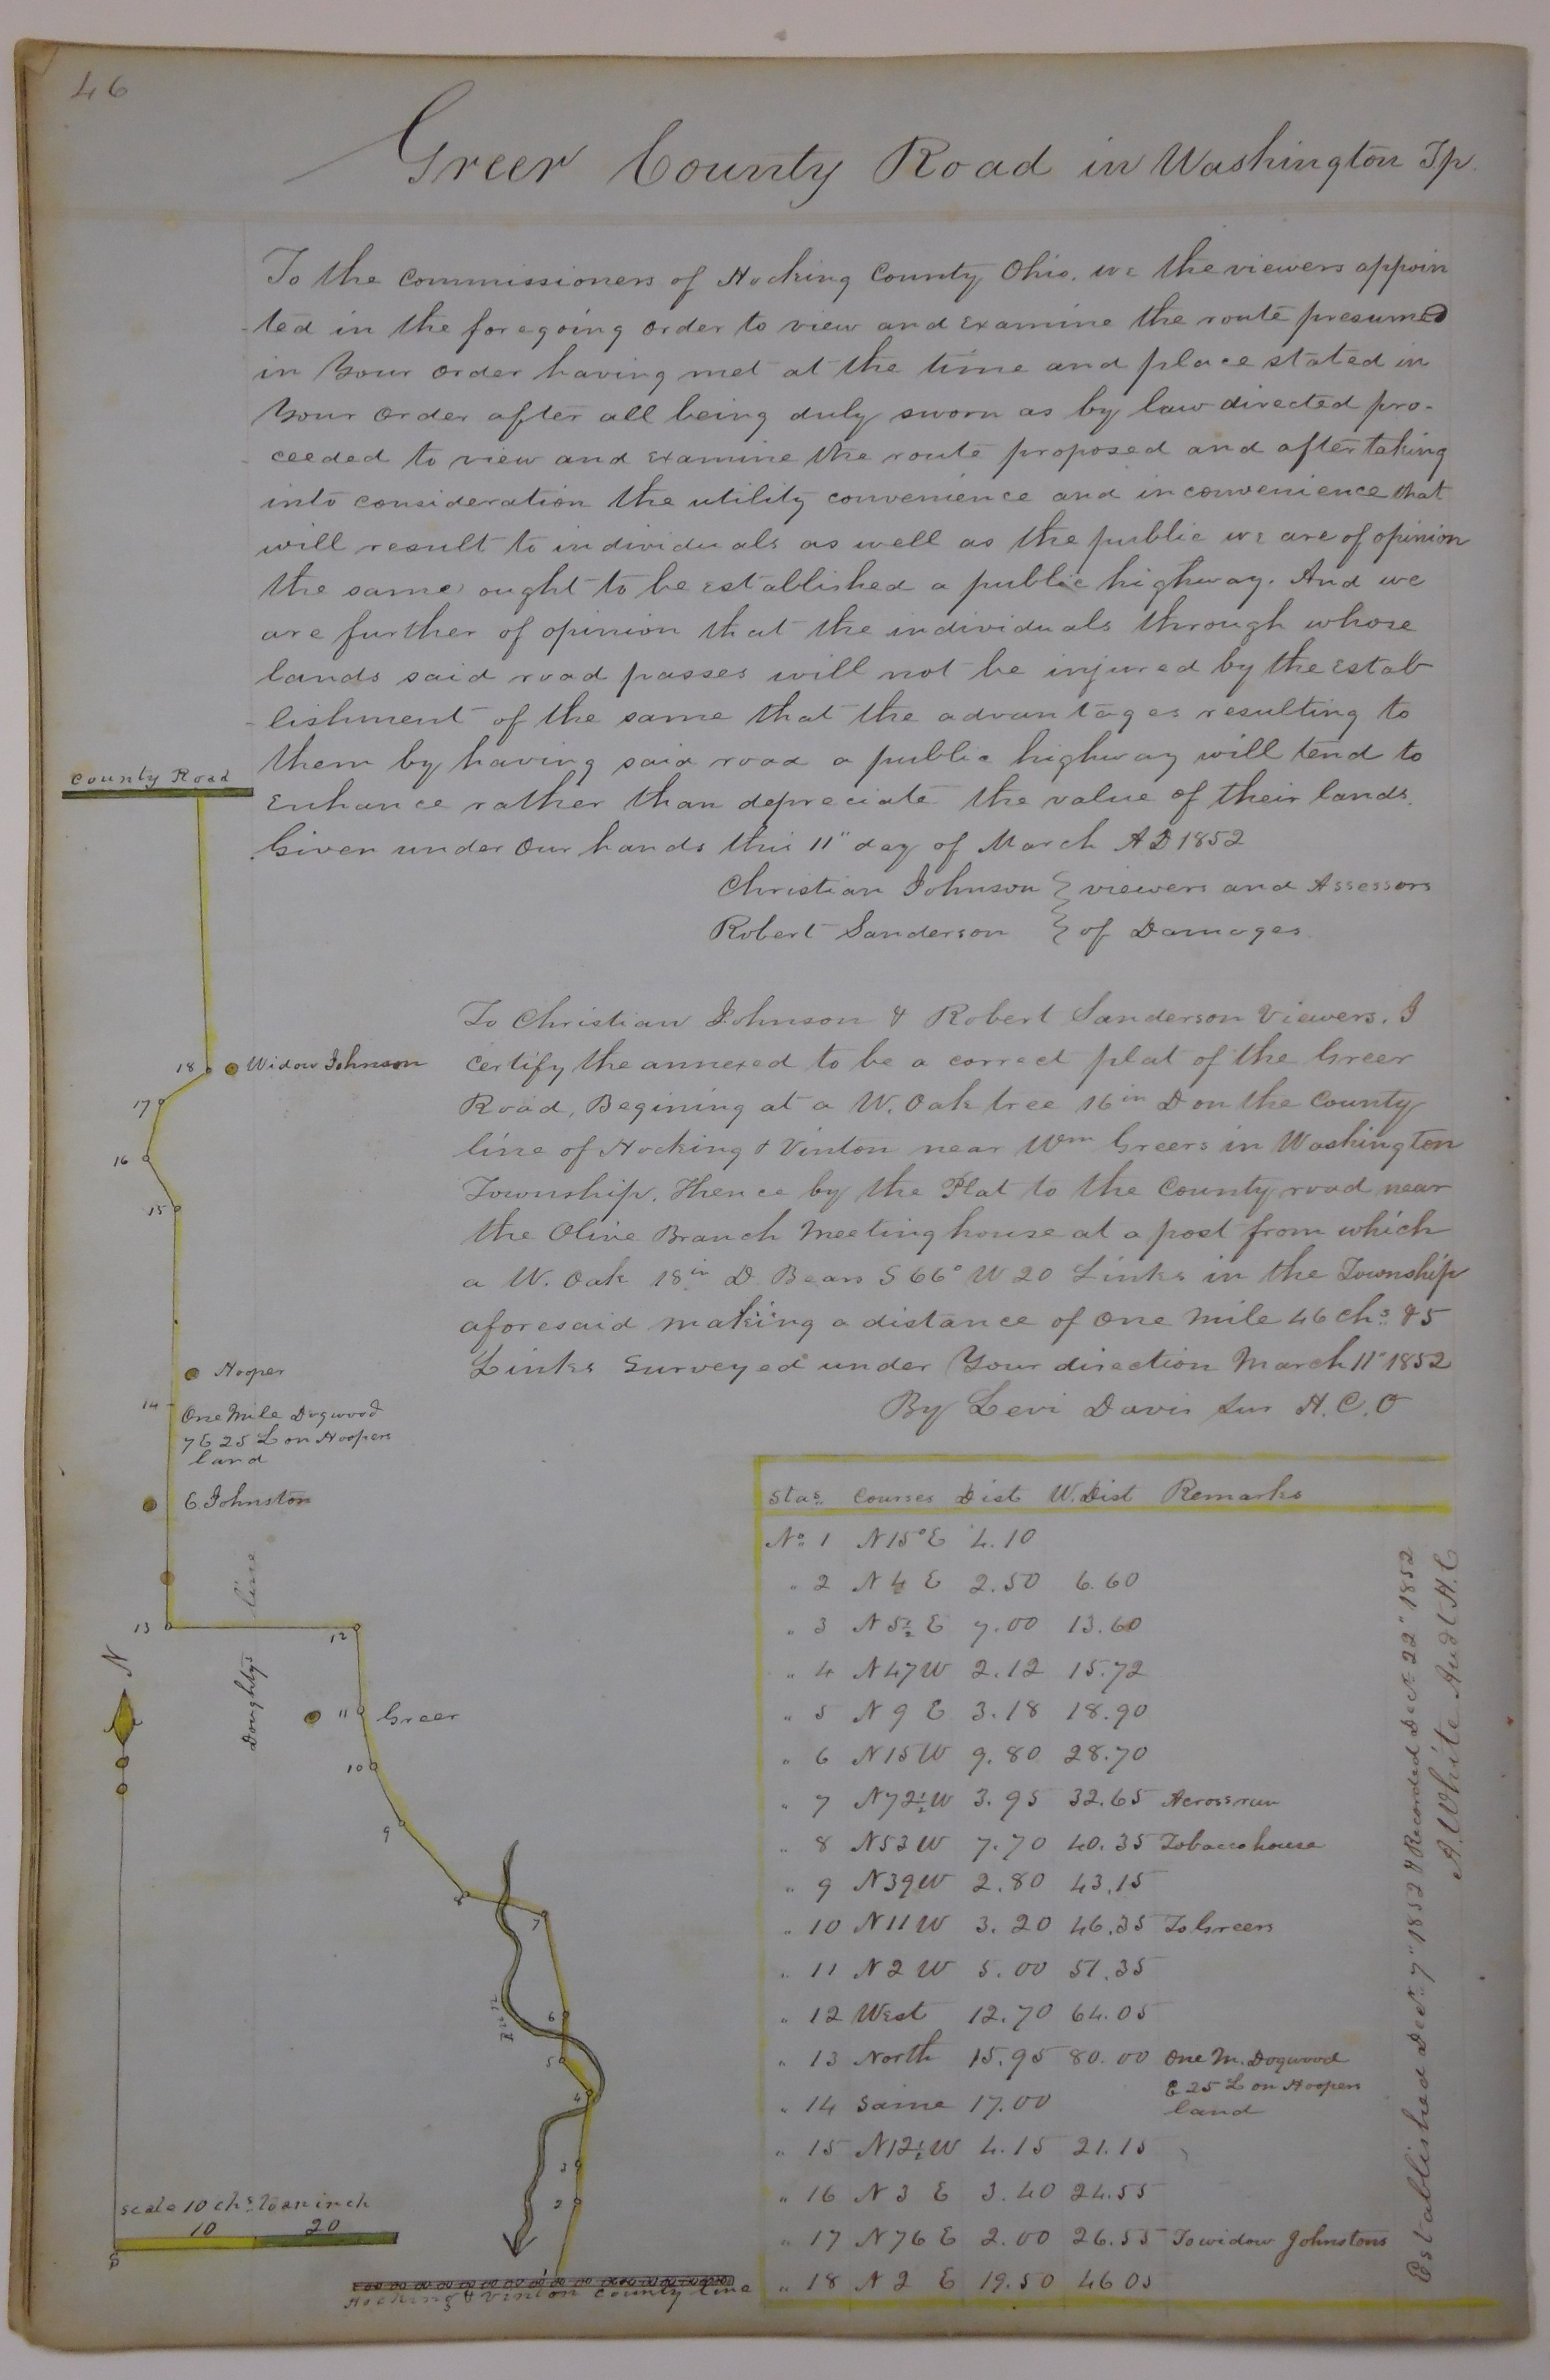 46
Greer County Road in Washington Tp.
To the Commissioners of Hocking County Ohio. We the viewers appoin
-ted in the foregoing order to view and Examine the route presumed
in Your order having met at the time and place stated in
Your order after all being duly sworn as by law directed pro-
ceeded to view and Examine the route proposed and after taking
into consideration the utility convenience and inconvenience that
will result to individuals as well as the public we are of opinion
the same ought to be established a public highway. And we
are further of opinion that the individuals through whose
lands said road passes will not be injured by the Estab
-lishment of the same that the advantages resulting to
them by having said road a public highway will tend to
Enhance rather than depreciate the value of their lands.
Given under Our hands this 11" day of March AD 1852
Christian Johnson } viewers and Assessors
Robert Sanderson } of Damages
To Christian Johnson & Robert Sanderson Viewers. I
Certify the annexed to be a correct plat of the Greer
Road, Begining at a W. Oak tree 16in D on the County
line of Hocking & Vinton near Wm Greers in Washington
Township. Thence by the Plat to the County road near
the Olive Branch Meeting house at a post from which
a W. Oak 18in D. Bears S 66° W 20 Links in the Township
aforesaid making a distance of One Mile 46 chs & 5
Links Surveyed under Your direction March 11" 1852
By Levi Davis Sur H. C. O
County Road
18 Widow Johnson
17
16
15
Hooper
14
One Mile Dogwood
7 E 25 L on Hoopers
land
E. Johnston
13
12
Doughtys line
N
11 Greer
10
9
8
7
6
5
4
3
2
1
scale 10 chs to an inch
10 20
S
Hocking & Vinton County Line
Stas. Courses Dist W. Dist Remarks
No. 1 N 15° E 4.10
" 2 N 4 E 2.50 6.60
" 3 N 5½ E 7.00 13.60
" 4 N 47 W 2.12 15.72
" 5 N 9 E 3.18 18.90
" 6 N 15 W 9.80 28.70
" 7 N 72½ W 3.95 32.65 Across run
" 8 N 53 W 7.70 40.35 Tobacco house
" 9 N 39 W 2.80 43.15
" 10 N 11 W 3.20 46.35 To Greers
" 11 N 2 W 5.00 51.35
" 12 West 12.70 64.05
" 13 North 15.95 80.00 One M. Dogwood
E 25 L on Hoopers
" 14 Same 17.00 land
" 15 N 12½ W 4.15 21.15
" 16 N 3 E 3.40 24.55
" 17 N 76 E 2.00 26.55 To widow Johnstons
" 18 N 2 E 19.50 46 05
Established Dec. 7" 1852 & Recorded Dec. 22" 1852
A. White Aud H. C